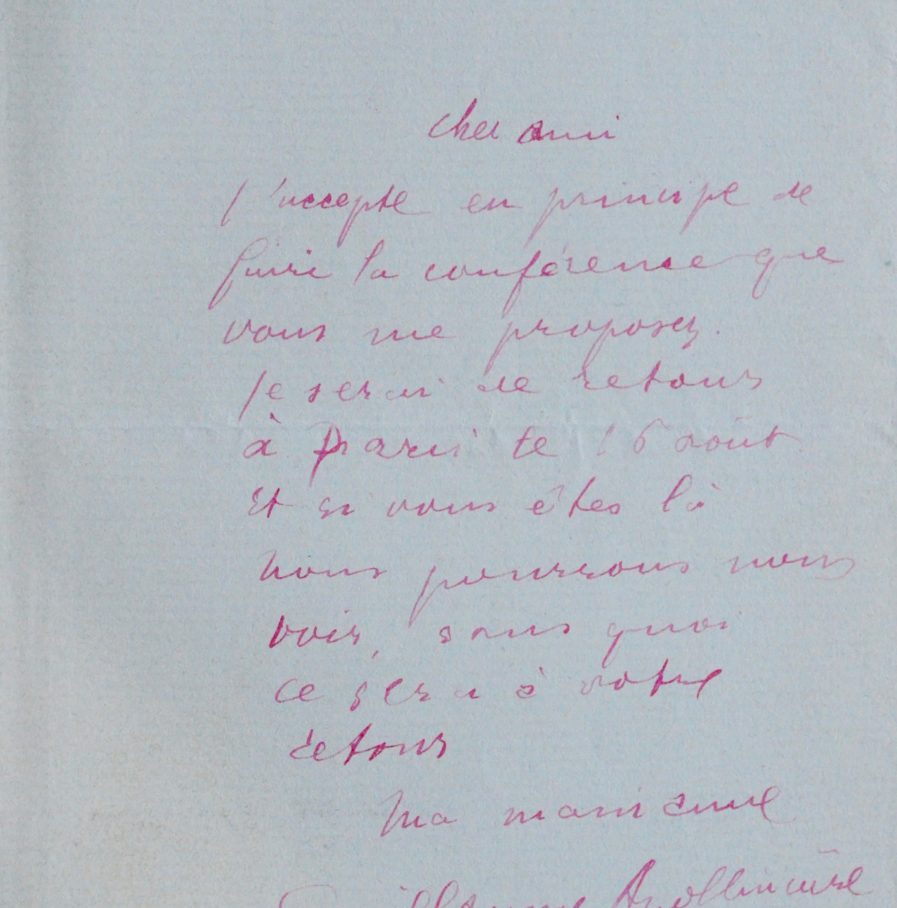 cher ami
j'accepte en principe de
faire la conférence que
vous me proposez.
je serai de retour
à Paris le 16 août
et si vous êtes là
nous pourrons nous
voir, sans quoi
ce sera à votre
retour
Ma main amie
Guillaume Apollinaire